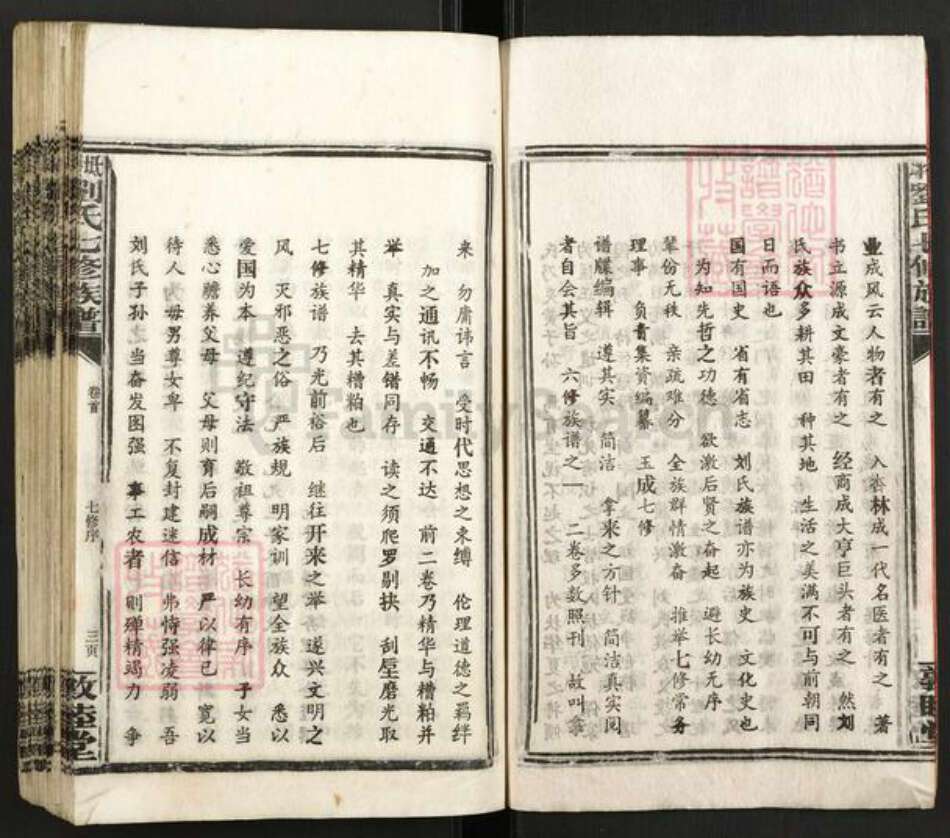 业成风云人物者有之　入杏林成一代名医者有之　著
书立源成文豪者有之　经商成大亨巨头者有之　然刘
氏族众多耕其田　种其地　生活之美满不可与前朝同
日而语也
国有国史　省有省志　刘氏族谱亦为族史　文化史也
为知先哲之功德　欲激后贤之奋起　避长幼无序
辈份无秩　亲疏难分　全族群情激奋　推举七修常务
理事　负责集资编纂　玉成七修
谱牒编辑　遵其实　简洁　拿来之方针　简洁真实阅
者自会其旨　六修族谱之一　二卷多数照刊　故叫拿
来　勿庸讳言　受时代思想之束缚　伦理道德之羁绊
加之通讯不畅　交通不达　前二卷乃精华与糟粕并
举　真实与差错同存　读之须爬罗剔抉　刮垕磨光取
其精华　去其糟粕也
七修族谱　乃光前裕后　继往开来之举　遂兴文明之
风　灭邪恶之俗　严族规　明家训　望全族众　悉以
爱国为本　遵纪守法　敬祖尊宗　长幼有序　子女当
悉心瞻养父母　父母则育后嗣成材　严以律已　宽以
待人　毋男尊女卑　不复封建迷信　弗恃强凌弱　吾
刘氏子孙　当奋发图强　事工农者　则殚精竭力　争
刘氏七修族譜
卷首
七修序
三页
敦睦堂
FamilySearch